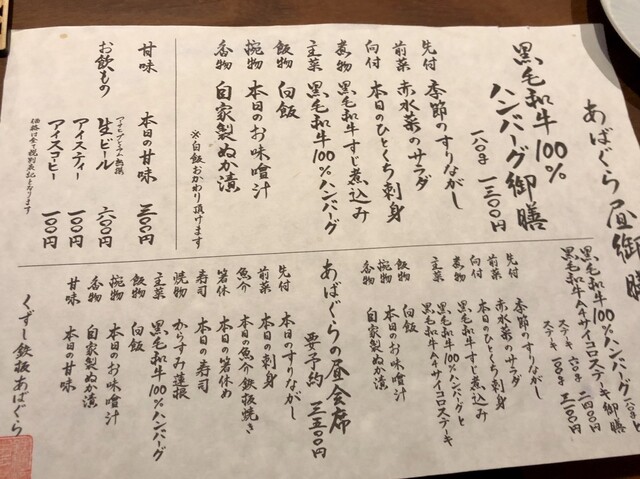 あばぐら昼御膳
黒毛和牛100%
ハンバーグ御膳
一八〇g 一三〇〇円
先付 季節のすりながし
前菜 赤水菜のサラダ
向付 本日のひとくち刺身
煮物 黒毛和牛すじ煮込み
主菜 黒毛和牛100%ハンバーグ
飯物 白飯
椀物 本日のお味噌汁
香物 自家製ぬか漬
※白飯おかわり頂けます
甘味 本日の甘味 三〇〇円
お飲もの
アサヒプレミアム熟撰
生ビール 六〇〇円
アイスティー 一〇〇円
アイスコーヒー 一〇〇円
価格は全て税別表記となります
黒毛和牛100%ハンバーグ
黒毛和牛A4サイコロステーキ御膳
ステーキ 六〇g 二四〇〇円
ステーキ 一〇〇g 三一〇〇円
先付 季節のすりながし
前菜 赤水菜のサラダ
向付 本日のひとくち刺身
煮物 黒毛和牛すじ煮込み
主菜 黒毛和牛100%ハンバーグと
黒毛和牛A4サイコロステーキ
飯物 白飯
椀物 本日のお味噌汁
香物 自家製ぬか漬
あばぐらの昼会席
要予約 三五〇〇円
先付 本日のすりながし
前菜 本日の刺身
魚介 本日の魚介鉄板焼き
箸休 本日の箸休め
寿司 本日の寿司
焼物 からすみ蓮根
主菜 黒毛和牛100%ハンバーグ
飯物 白飯
椀物 本日のお味噌汁
香物 自家製ぬか漬
甘味 本日の甘味
くずし鉄板あばぐら